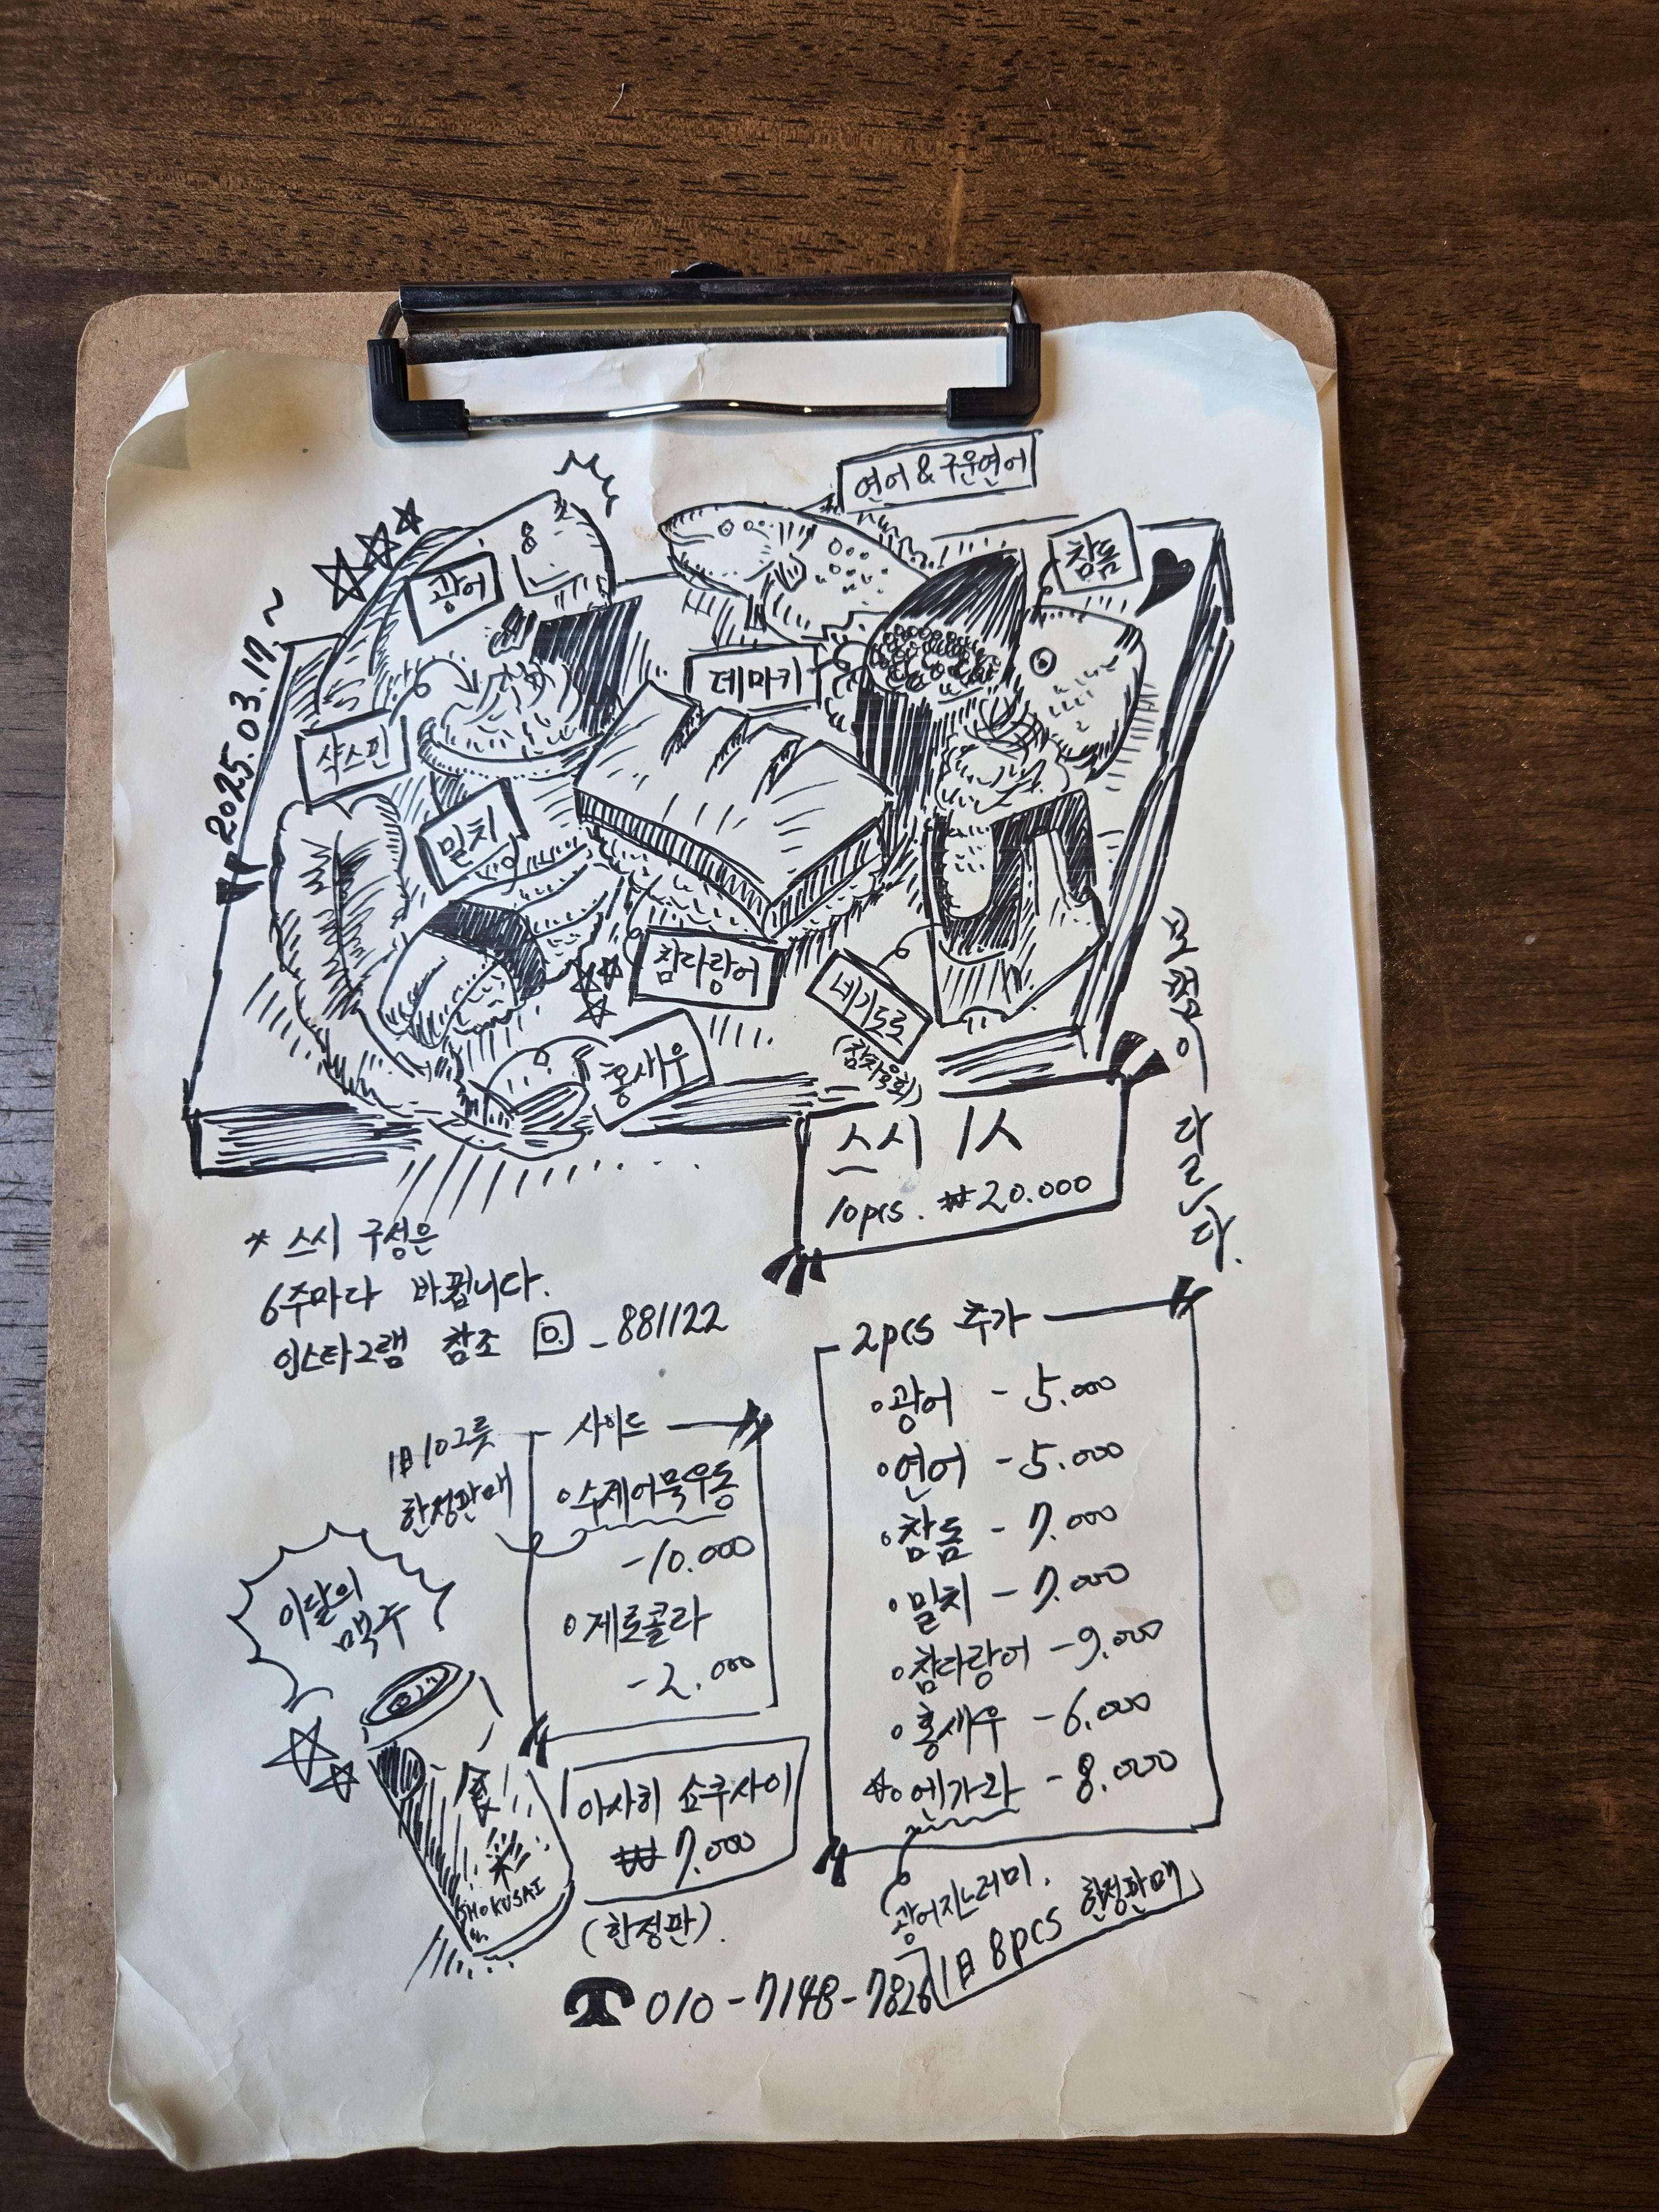 연어&구운연어
참돔
광어
2025.03.17~
데마키
샥스핀
밀치
참다랑어
네기도로
(참치육회)
홍새우
스시 1人
10pcs. ₩20.000
달란다.
* 스시 구성은
6주마다 바뀝니다.
인스타그램 참조 _881122
2pcs 추가
광어 - 5.000
연어 - 5.000
참돔 - 7.000
밀치 - 7.000
참다랑어 - 9.000
홍새우 - 6.000
에가라 - 8.000
광어지느러미.
1日 8pcs 한정판매
사이드
1日 10그릇
한정판매
수제어묵우동
-10.000
제로콜라
-2.000
이달의
맥주
食
彩
SHOKUSAI
아사히 쇼쿠사이
₩7.000
(한정판).
010-7148-7826